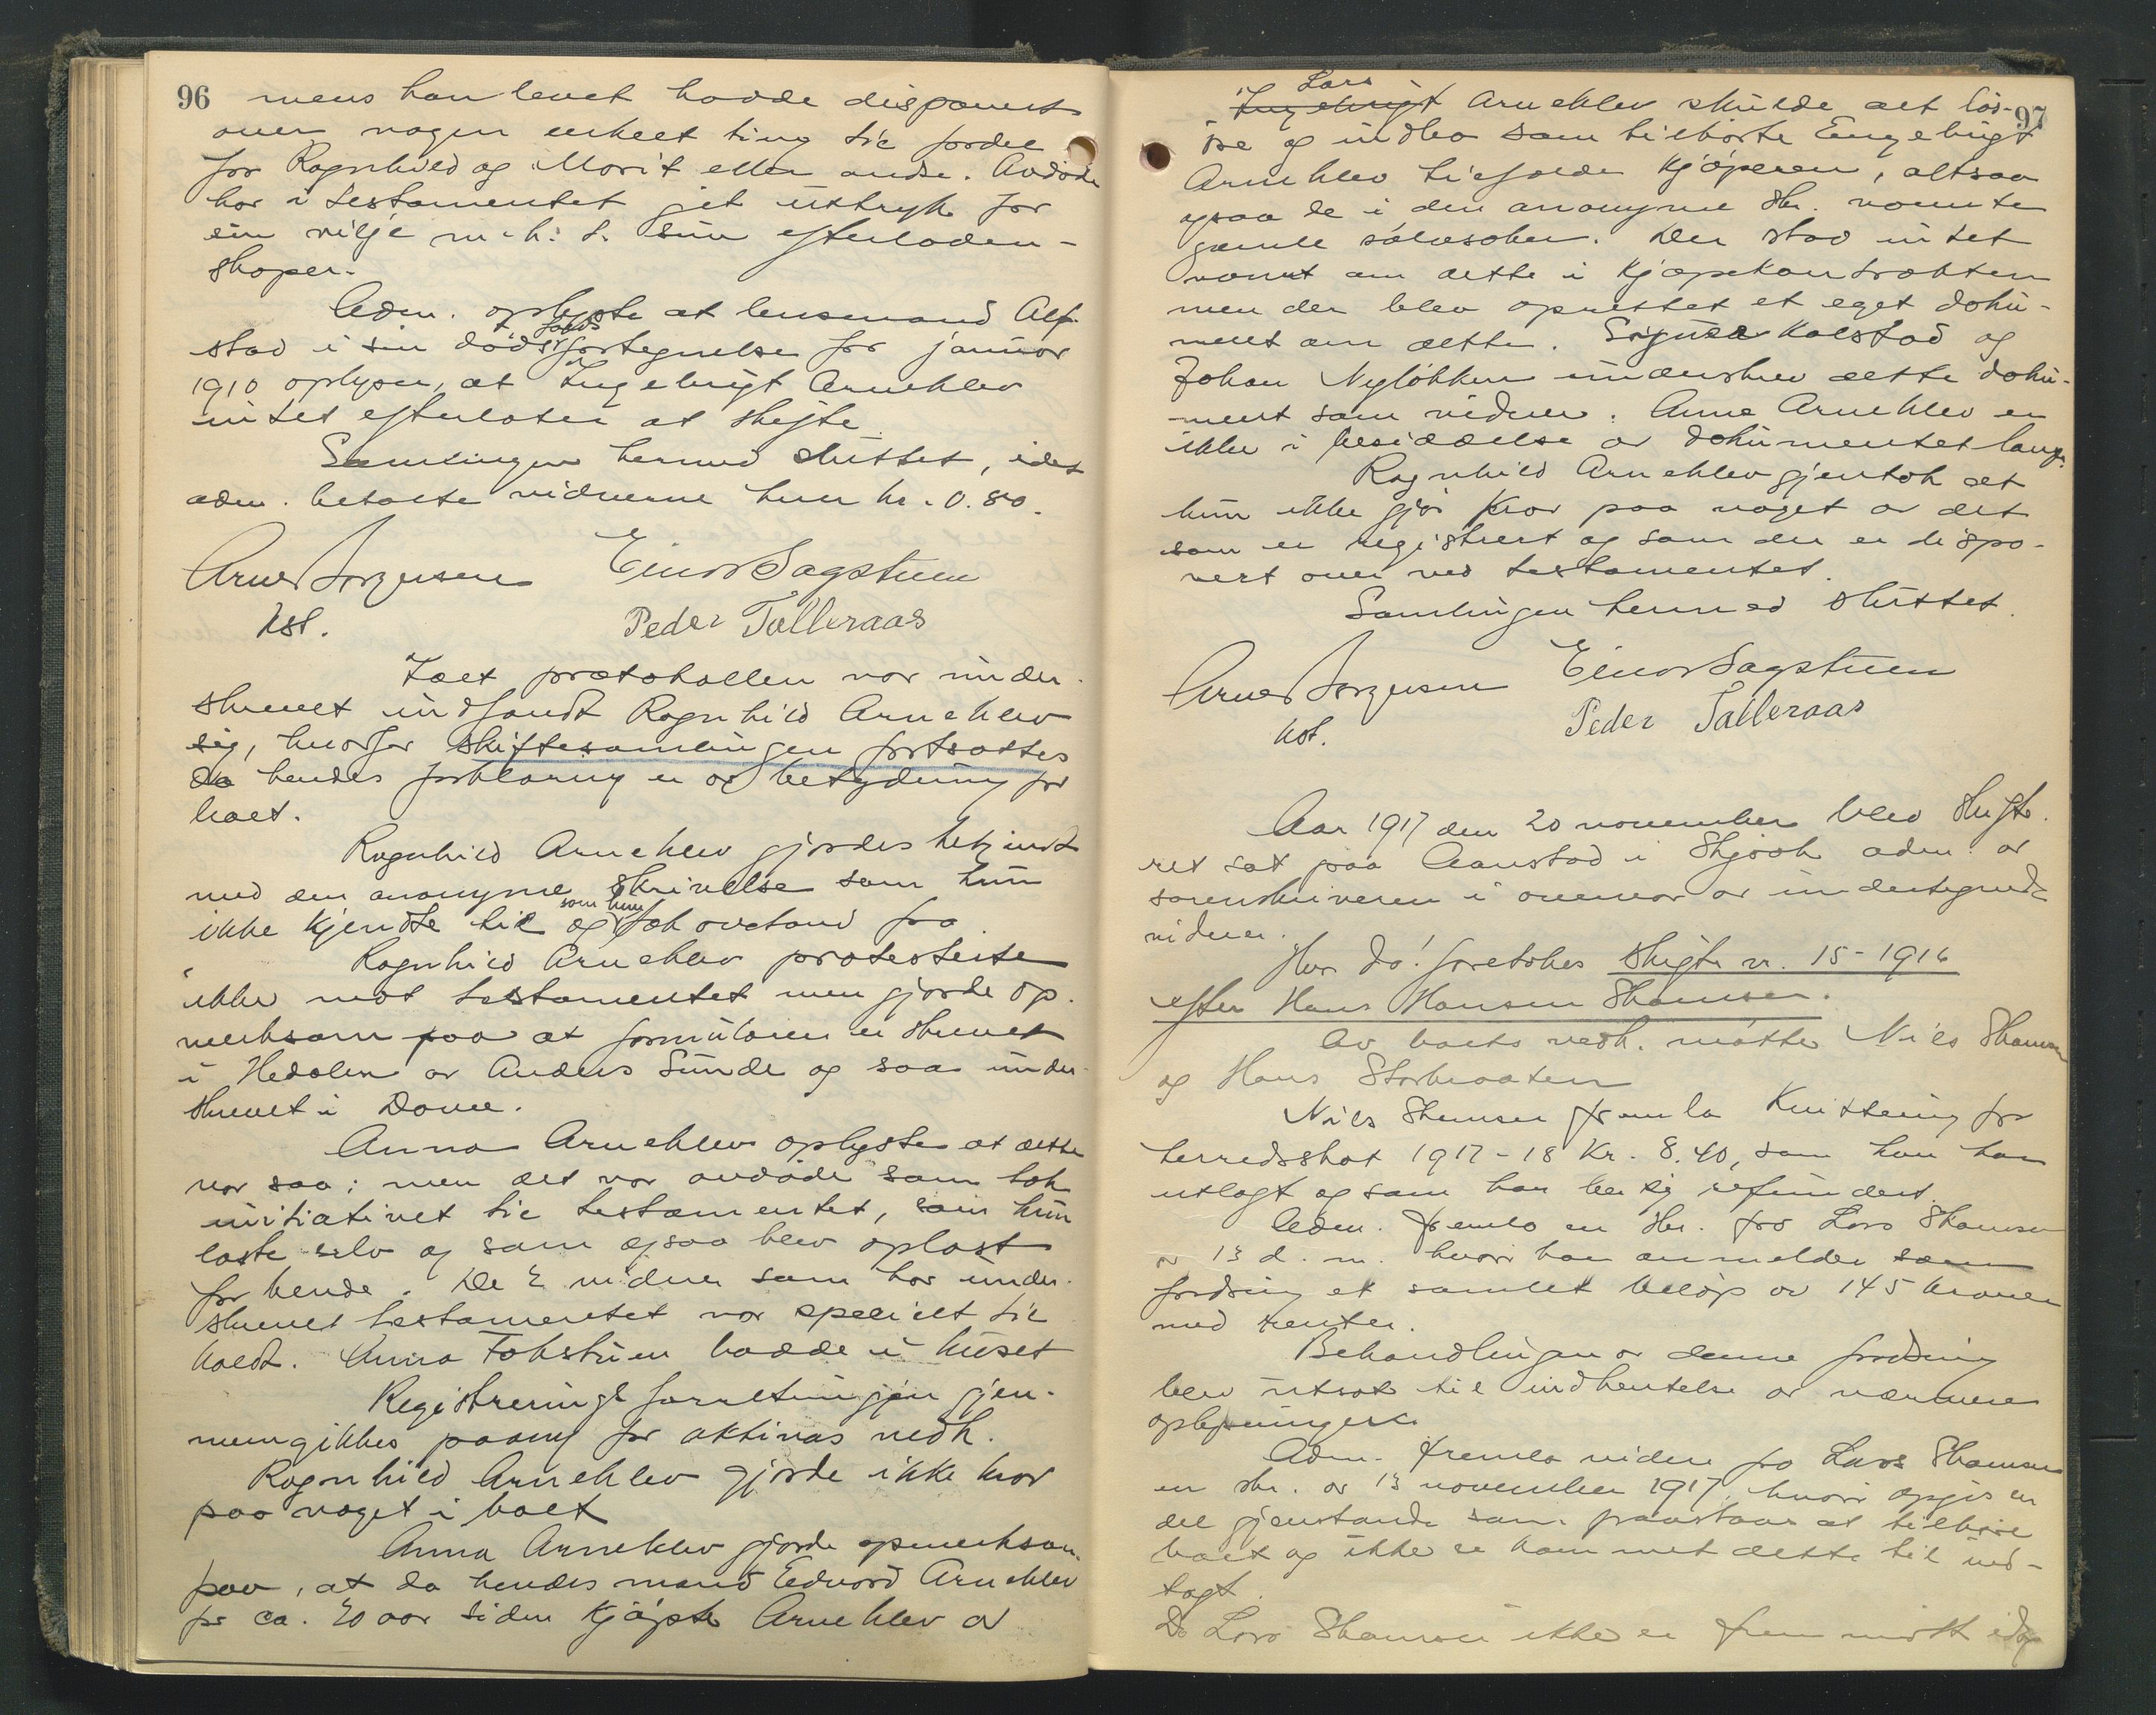 96
mens han levet hadde disponert
over nogen enkelt ting til fordel
for Ragnhild og Marit eller andre. Avdøde
har i testamentet git uttryk for
sin vilje m. h. t. sine efterladen-
skaper.
Adm. oplyste at lensmand Alf-
stad i sin dødsfaldsfortegnelse for januar
1910 oplyser, at Ingebrigt Arneklev
intet efterlater at skifte
Samlingen hermed sluttet, idet
adm. betalte vidnerne hver kr. 0.80.
Arne Jørgensen Einar Sagstuen
kst. Peder Talleraas
Idet protokollen var under-
skrevet indfandt Ragnhild Arneklev
sig, hvorfor skiftesamlingen fortsattes
da hendes forklaring er av betydning for
boet.
Ragnhild Arneklev gjordes bekjendt
med den anonyme skrivelse som hun
ikke kjendte til og som hun tok avstand fra.
Ragnhild Arneklev protesterte
ikke mot testamentet men gjorde op-
merksom paa at formularen er skrevet
i Hedalen av Anders Sunde og saa under-
skrevet i Dovre.
Anna Arneklev oplyste at dette
var saa; men det var avdøde som tok
initiativet til testamentet, som hun
læste selv og som ogsaa blev oplæst
for hende. De 2 vidner som har under-
skrevet testamentet var specielt til-
kaldt. Anna Fokstuen hadde i huset
Registreringsforretningen gjen-
nemgikkes paany for aktivas vedk.
Ragnhild Arneklev gjorde ikke krav
paa noget i boet
Anna Arneklev gjorde opmerksom
paa, at da hendes mand Edvard Arneklev
for ca. 20 aar siden kjøpte Arneklev av
97
Lars
Ingebrigt Arneklev skulde alt løs-
øre og indbo som tilhørte Engebrigt
Arneklev tilfalde kjøperen, altsaa
ogsaa de i den anonyme skr. nævnte
gamle sølvsaker. Der stod intet
nævnt om dette i kjøpekontrakten
men der blev oprettet et eget doku-
ment om dette. Sigurd Kolstad og
Johan Nyløkken underskrev dette doku-
ment som vidner. Anne Arneklev er
ikke i besiddelse av dokumentet længer.
Ragnhild Arneklev gjentok at
hun ikke gjør krav paa noget av det
som er registrert og som der er dispo-
nert over ved testamentet.
Samlingen hermed sluttet.
Arne Jørgensen Einar Sagstuen
kst. Peder Talleraas
Aar 1917 den 20 november blev skifte-
ret sat paa Aanstad i Skjaak adm. av
sorenskriveren i overvær av undertegnede
vidner.
Hvor da: foretokes Skifte nr. 15-1916
efter Hans Hansen Skamsar.
Av boets vedk. møtte Nils Skamsar
og Hans Storbraaten
Nils Skamsar fremla kvittering for
herredsskat 1917-18 Kr. 8.40, som han har
utlagt og som han ber sig refundert.
Adm. fremla en skr. fra Lars Skamsar
av 13 d. m. hvori han anmelder som
fordring et samlet beløp av 145 kroner
med renter.
Behandlingen av denne fordring
blev utsat til indhentelse av nærmere
oplysninger.
Adm. fremla videre fra Lars Skamsar
en skr. av 13 november 1917 hvori opgis en
del gjenstande som paastaaes at tilhøre
boet og ikke er kommet dette til ind-
tægt.
Da Lars Skamsar ikke er fremmøtt idag